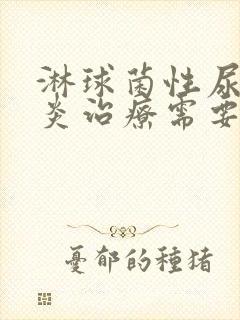 淋球菌性尿
炎治療需要
憂郁的種猪